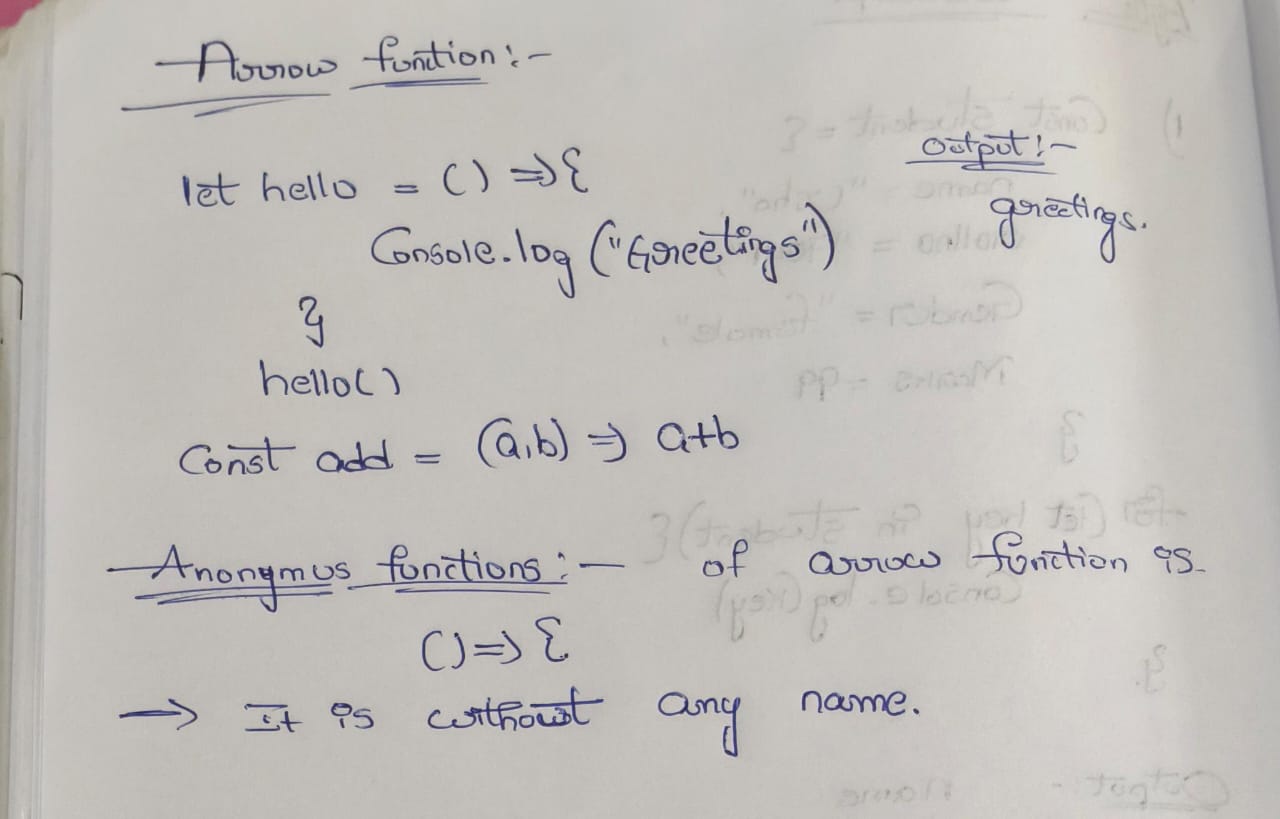 Arrow function:-
let hello = () => {
Output:-
Console.log ("Greetings")
greetings.
}
hello()
Const add = (a,b) => a+b
Anonymus functions:- of arrow function is
() => {
→ It is without any name.